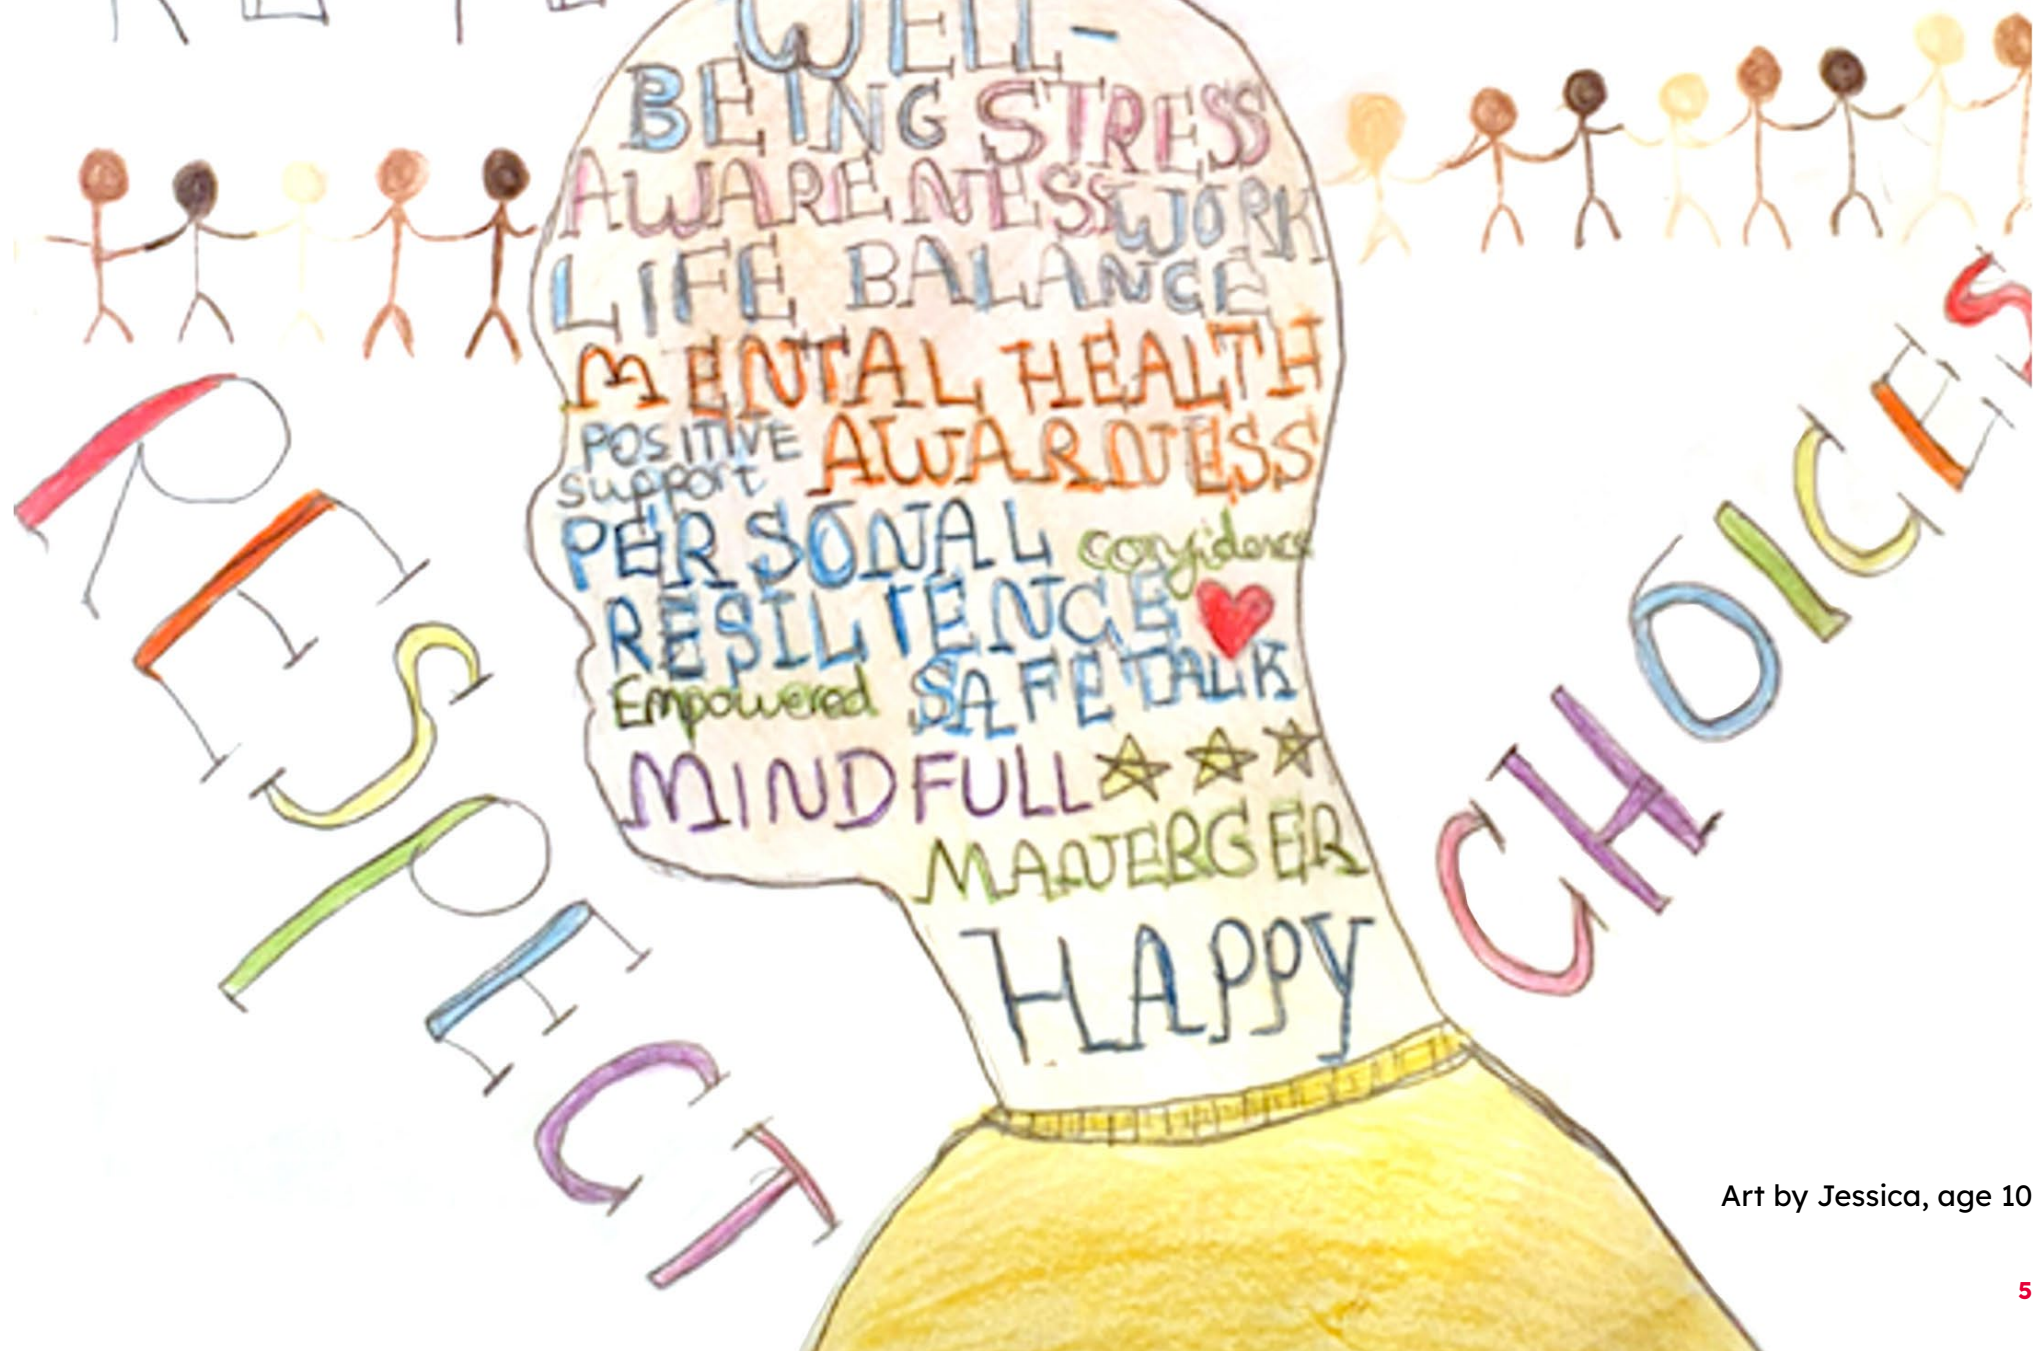 WELL-
BEING STRESS
AWARENESS WORK
LIFE BALANCE
MENTAL HEALTH
POSITIVE AWARNESS
support
PERSONAL confidence
RESILIENCE
Empowered SAFE TALK
MINDFULL
MANERGER
HAPPY
RESPECT
CHOICES
Art by Jessica, age 10
5